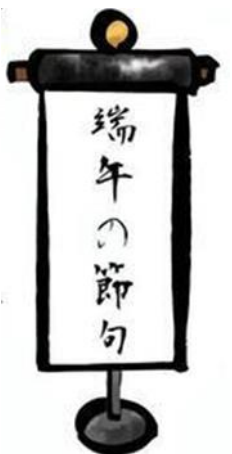 端午の節句